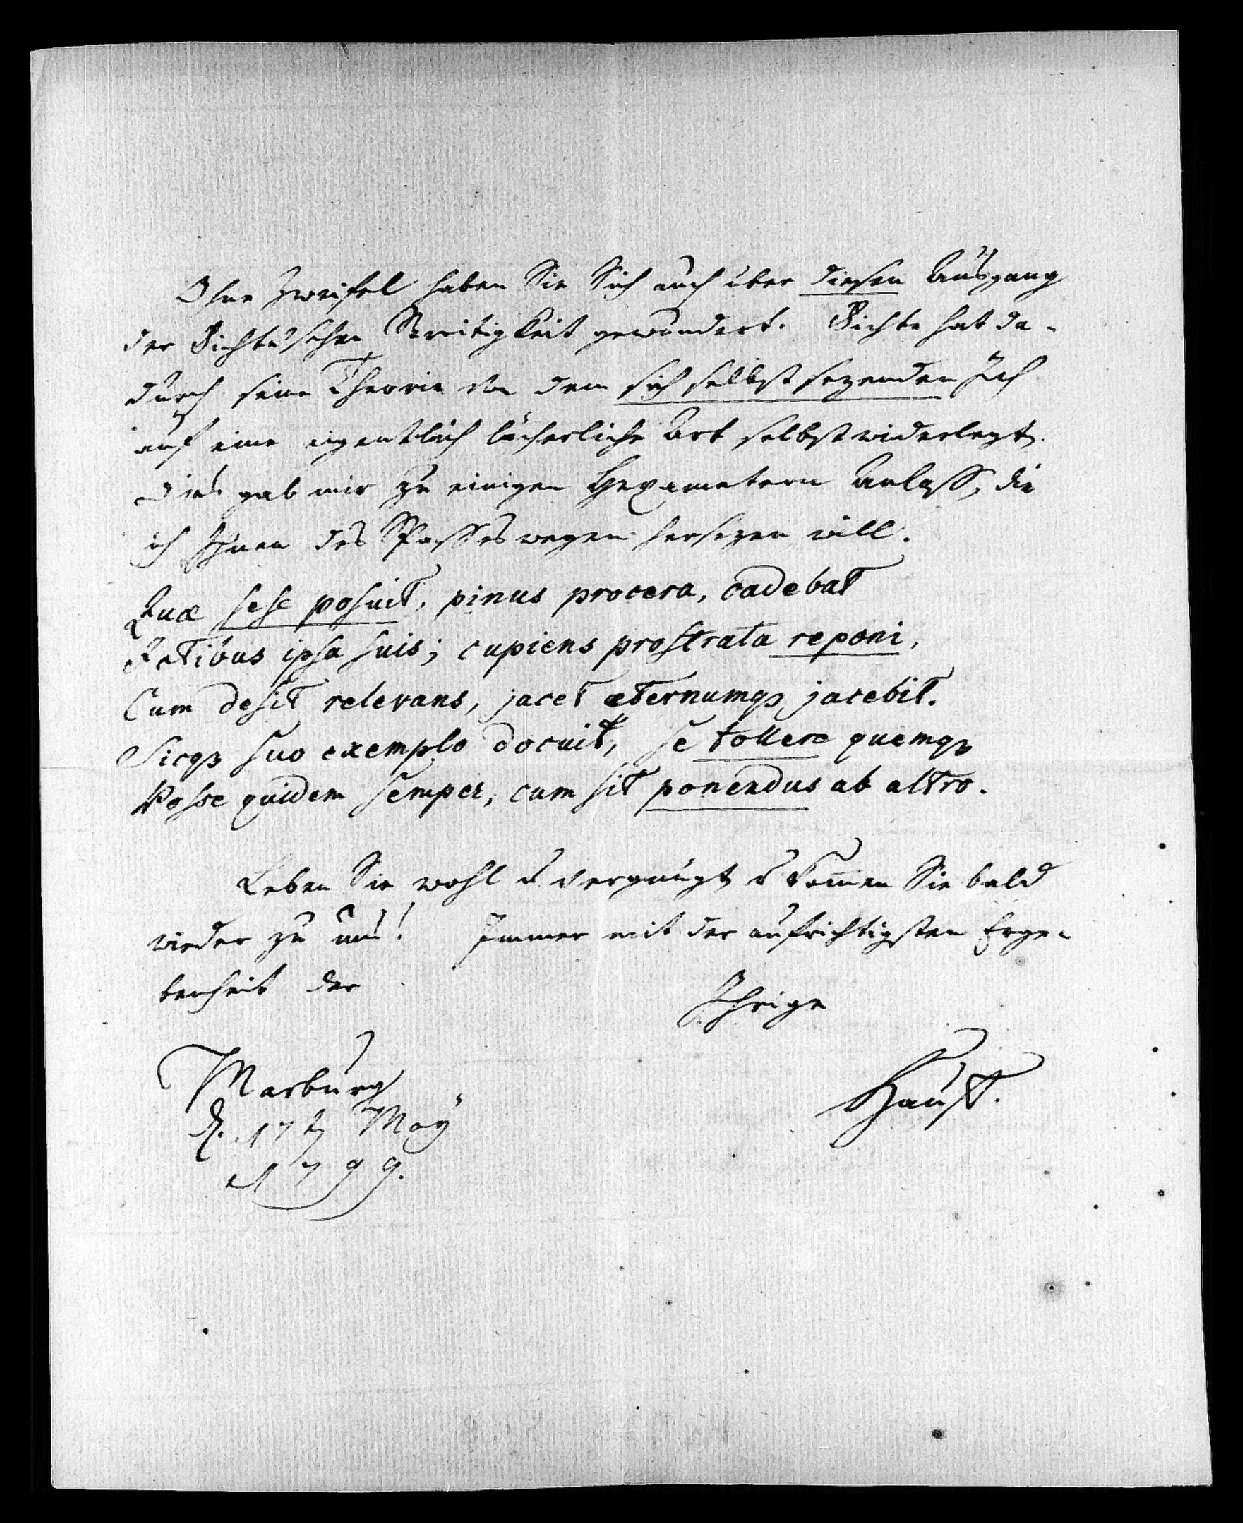 Ohne Zweifel haben Sie Sich auch über diesen Ausgang
der Fichte'schen Streitigkeit gewundert. Fichte hat da-
durch seine Theorie von dem sich selbst sezenden Ich
auf eine eigentlich lächerliche Art selbst widerlegt.
Dies gab mir zu einigen Hexametern Anlass, die
ich Ihnen des Spasses wegen hersezen will.
Quæ sese posuit, pinus procera, cadebat
Actibus ipsa suis; cupiens prostrata reponi,
Cum desit relevans, jacet æternumqꝫ jacebit.
Sicqꝫ suo exemplo docuit, se tollere quemqꝫ
Posse quidem semper, cum sit ponendus ab altro.
Leben Sie wohl u vergnügt u kom̄en Sie bald
wieder zu uns! Immer mit der aufrichtigsten Erge-
benheit der
Ihrige
Marburg
d. 17 May
1799.